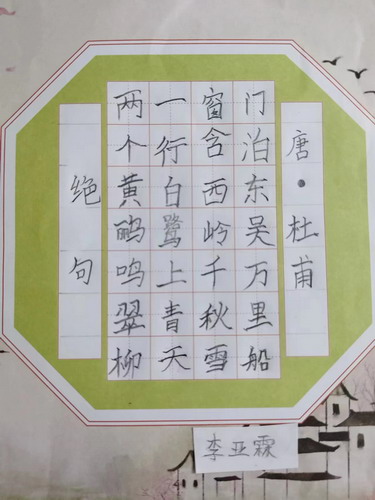 绝句
两个黄鹂鸣翠柳
一行白鹭上青天
窗含西岭千秋雪
门泊东吴万里船
唐·杜甫
李亚霖